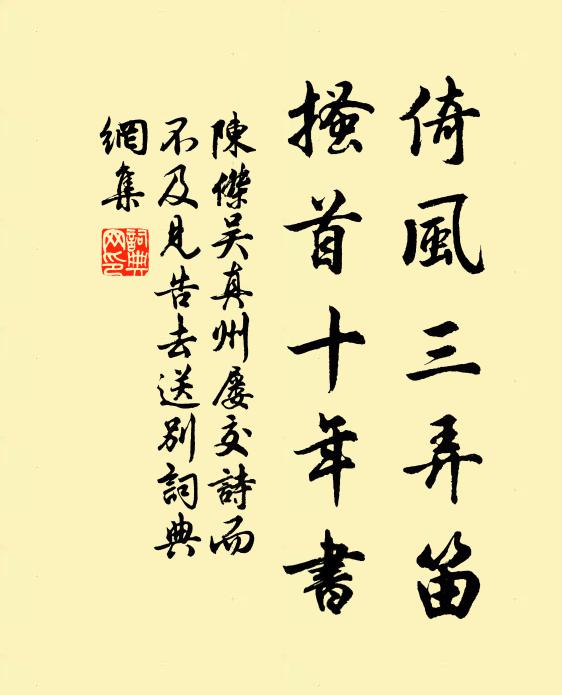 倚風三弄笛
搔首十年書
陳傑吴真州屡交詩而
不及見告去送别詞典
網集
詞典
网印